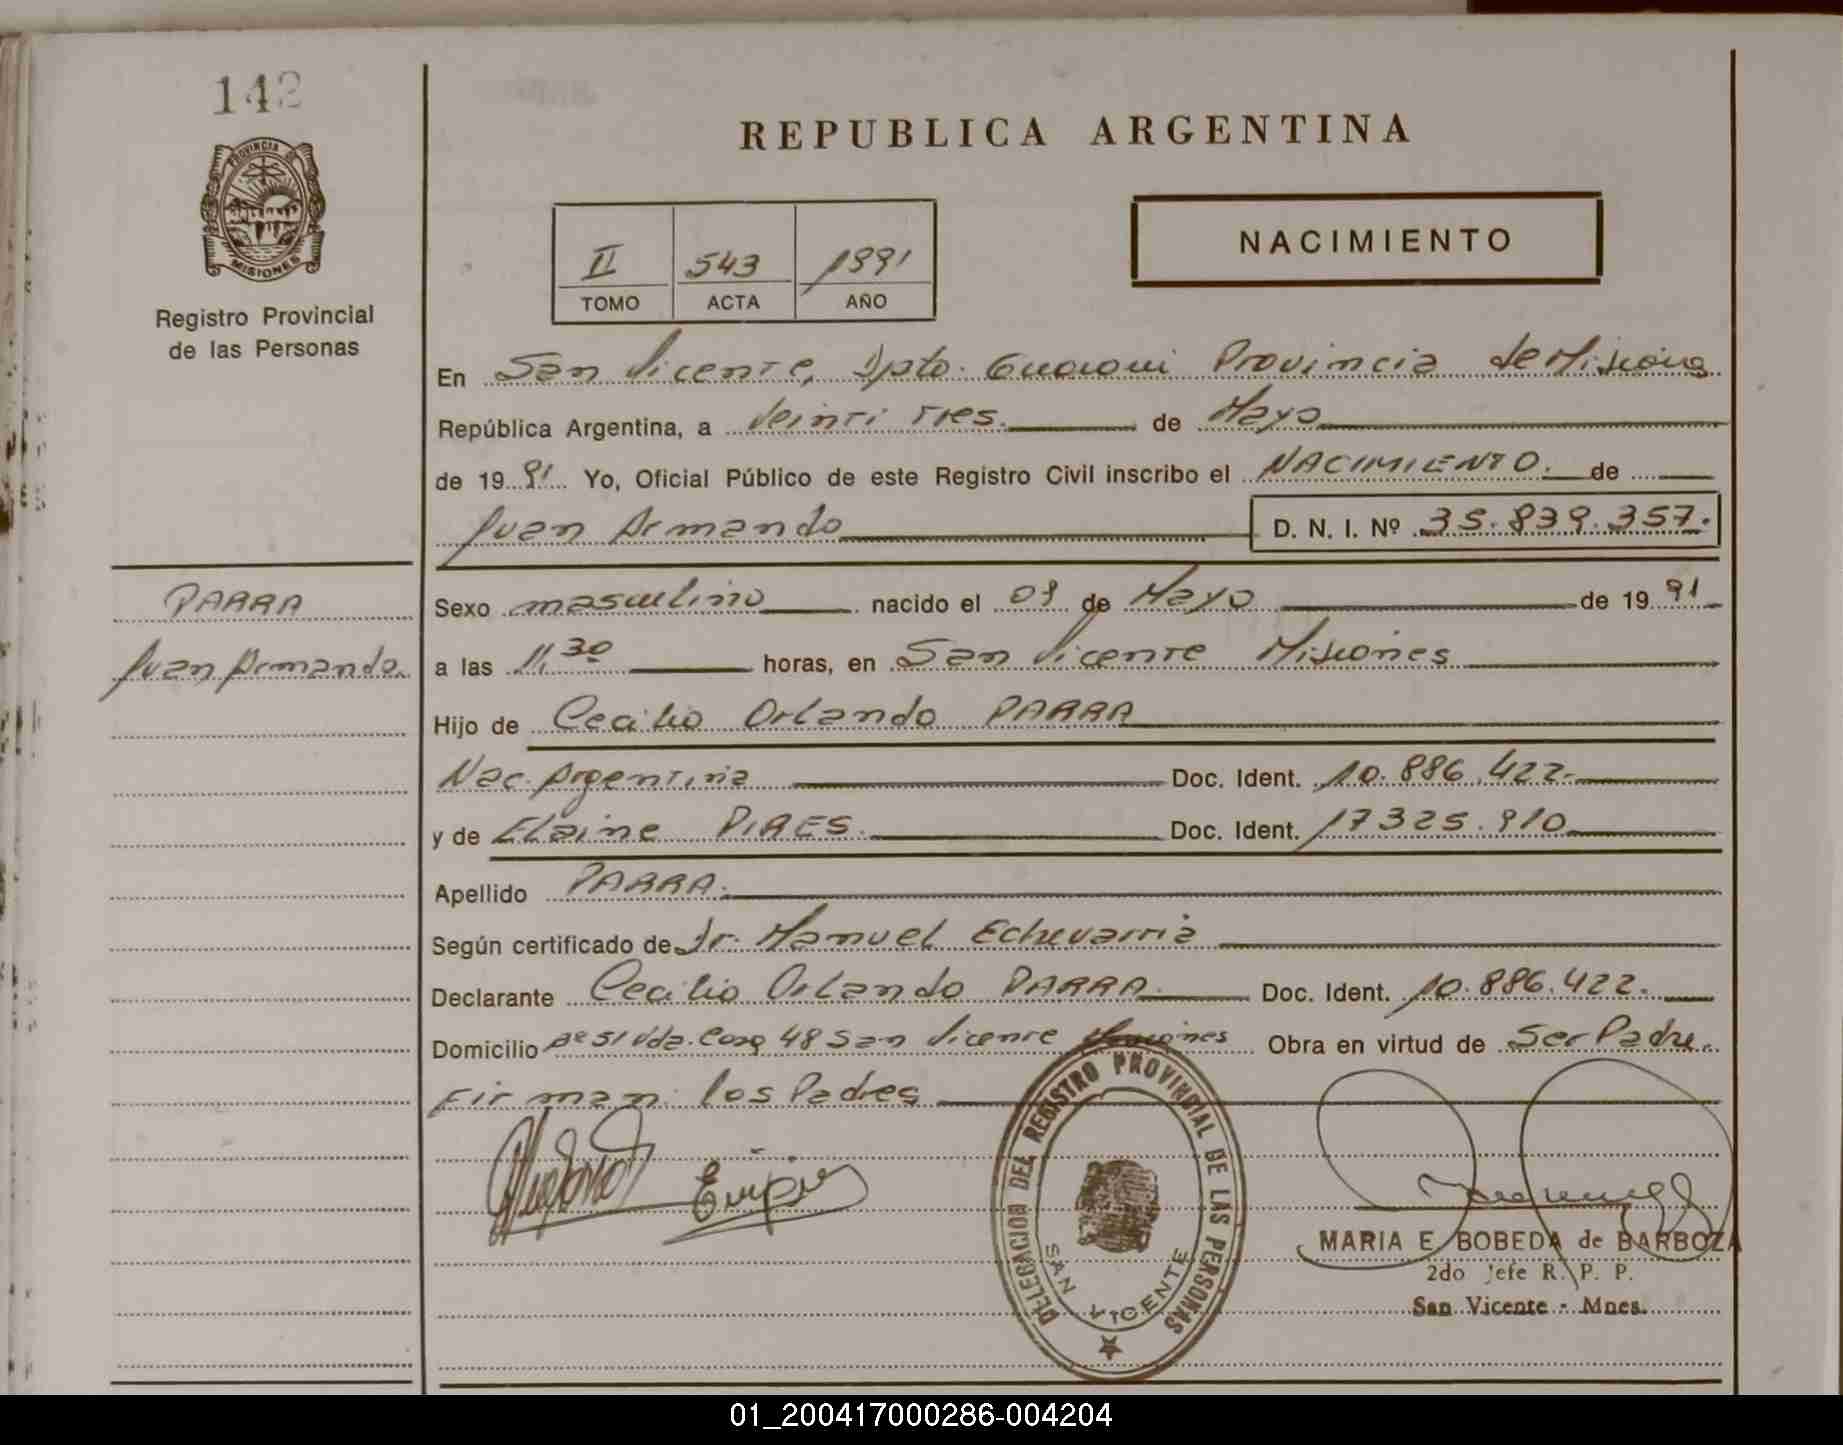 142
PROVINCIA DE
MISIONES
Registro Provincial
de las Personas
REPUBLICA ARGENTINA
II 543 1991
TOMO ACTA AÑO
NACIMIENTO
En San Vicente, Dpto. Guarani Provincia de Misiones
República Argentina, a Veinti Tres de Mayo
de 19 91 Yo, Oficial Público de este Registro Civil inscribo el NACIMIENTO. de
Juan Armando D. N. I. Nº 35.839.357.
PARRA
Juan Armando.
Sexo masculino nacido el de Mayo de 19 91
a las 11,30 horas, en San Vicente Misiones
Hijo de Cecilio Orlando PARRA
Nac. Argentina Doc. Ident. 10.886.422.
y de Elaine PIRES. Doc. Ident. 17325.910
Apellido PARRA.
Según certificado de Dr. Manuel Echevarria
Declarante Cecilio Orlando PARRA. Doc. Ident. 10.886.422.
Domicilio Bº 51 Vda. Casa 48 San Vicente Misiones Obra en virtud de Ser Padre.
Firman: los Padres
DELEGACION DEL REGISTRO PROVINCIAL DE LAS PERSONAS
SAN VICENTE
MARIA E. BOBEDA de BARBOZA
2do Jefe R. P. P.
San Vicente - Mnes.
01_200417000286-004204